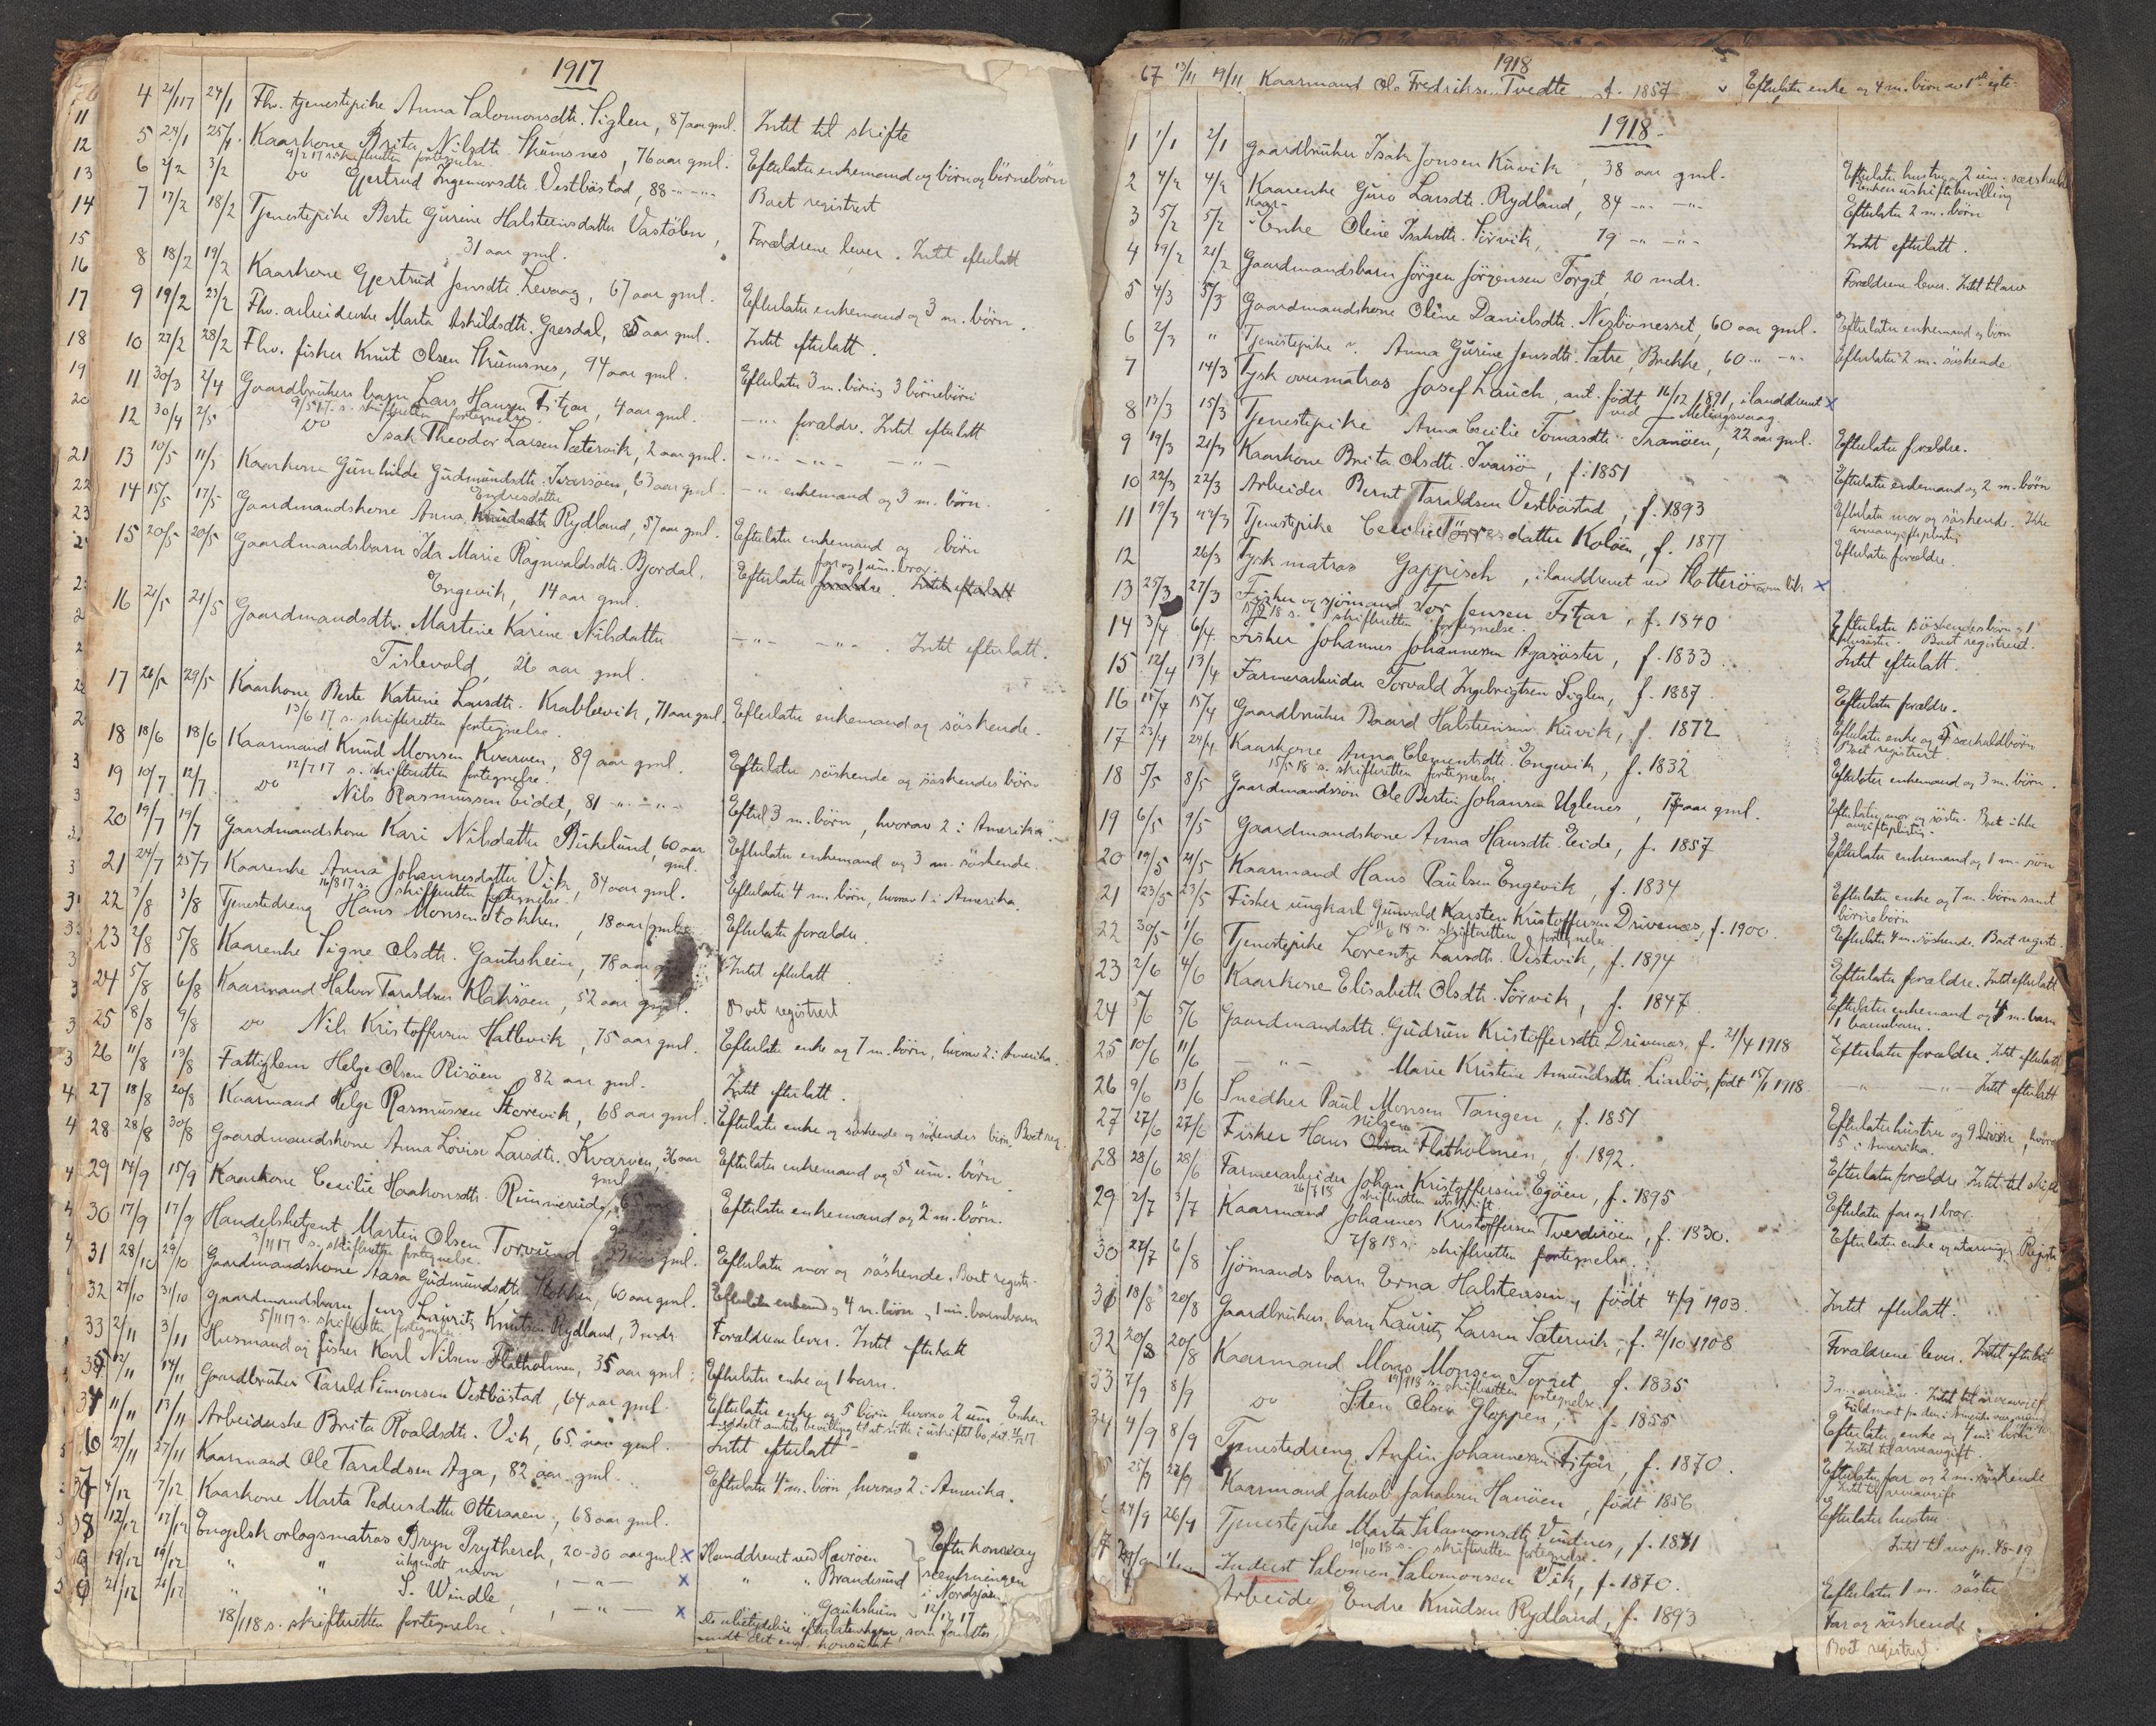 1917
4 21/1 17 24/1 Fhv. tjenestepike Anna Salomonsdtr. Siglen, 87 aar gml. Intet til skifte
5 24/1 25/1 Kaarkone Brita Nilsdtr. Skumsnes, 76 aar gml. Efterlater enkemand og börn og börnebörn
9/2 17 s. skifteretten fortegnelse.
6 2/2 3/2 do Gjertrud Ingemarsdtr. Vestböstad, 88 -"- -"- Boet registrert
7 17/2 18/2 Tjenestepike Berte Gurine Halsteinsdatter Vastölen, Forældrene lever. Intet efterlatt
31 aar gml.
8 18/2 19/2 Kaarkone Gjertrud Jensdtr. Levaag, 67 aar gml. Efterlater enkemand og 3 m. börn.
9 19/2 23/2 Fhv. arbeiderske Marta Askildsdtr. Gresdal, 85 aar gml. Intet efterlatt.
10 27/2 28/2 Fhv. fisker Knut Olsen Skumsnes, 94 aar gml. Efterlater 3 m. börn og 3 börnebörn
11 30/3 2/4 Gaardbrukers barn Lars Hansen Fitjar, 4 aar gml. -"- forældr. Intet efterlatt
9/5 17 s. skifteretten fortegnelse
12 30/4 2/5 do Isak Theodor Larsen Sætervik, 2 aar gml. -"- -"- -"-
13 10/5 11/5 Kaarkone Gunhilde Gudmundsdtr. Ivarsöen, 63 aar gml. -"- enkemand og 3 m. börn.
14 15/5 17/5 Gaardmandskone Anna Knudsdtr Endresdatter Rydland, 57 aar gml. Efterlater enkemand og börn
15 20/5 20/5 Gaardmandsbarn Ida Marie Ragnvaldsdtr. Bjordal, Efterlater forældre far og 1 um. bror. Intet efterlatt
Engevik, 14 aar gml.
16 21/5 21/5 Gaardmandsdtr. Martine Karine Nilsdatter -"- -"- . Intet efterlatt.
Tislevold, 26 aar gml.
17 26/5 29/5 Kaarkone Berte Katrine Larsdtr. Krabbevik, 71 aar gml. Efterlater enkemand og söskende.
13/6 17 s. skifteretten fortegnelse
18 18/6 18/6 Kaarmand Knud Monsen Kvarven, 89 aar gml. Efterlater söskende og söskendes börn
12/7 17 s. skifteretten fortegnelse.
19 10/7 12/7 do Nils Rasmussen Eidet, 81 -"- -"- Efterl. 3 m. börn, hvorav 2 i Amerika
20 19/7 19/7 Gaardmandskone Kari Nilsdatter Birkelund, 60 aar gml. Efterlater enkemand og 3 m. söskende
21 24/7 25/7 Kaarenke Anna Johannesdatter Vik, 84 aar gml. Efterlater 4 m. börn, hvorav 1 i Amerika.
16/8 17 s. skifteretten fortegnelse
22 3/8 3/8 Tjenestedreng Hans Monsen Stokken, 18 aar gml. Efterlater forældre.
23 2/8 5/8 Kaarenke Signe Olsdtr. Gauksheim, 78 aar Intet efterlatt.
24 5/8 6/8 Kaarmand Halvor Taraldsen Klaksöen, 52 aar gml. Boet registrert
25 8/8 9/8 do Nils Kristoffersen Hatlevik, 75 aar gml. Efterlater enke og 7 m. börn, hvorav 2 i Amerika.
26 11/8 13/8 Fattiglem Helge Olsen Risöen, 82 aar gml. Intet efterlatt.
27 18/8 20/8 Kaarmand Helge Rasmussen Storevik, 68 aar gml. Efterlater enke og söskende og söskendes börn. Boet reg.
28 28/8 30/8 Gaardmandskone Anna Lovise Larsdtr. Kvarven, 36 aar gml. Efterlater enkemand og 5 um. börn.
29 14/9 15/9 Kaarkone Cecilie Haakonsdtr. Rimmereide, Efterlater enkemand og 2 m. börn.
30 17/9 17/9 Handelsbetjent Martin Olsen Torsund gml. Efterlater mor og söskende. Boet registr.
3/11 17 s. skifteretten fortegnelse.
31 28/10 29/10 Gaardmandskone Aasa Gudmundsdtr. Stokken, 60 aar gml. Efterlater enkemd og 4 m. börn, 1 um. barnebarn
32 27/10 31/10 Gaardmandsbarn Jens Laurits Knutsen Rydland, 3 mdr. Forældrene lever. Intet efterlatt
5/11 17 s. skifteretten fortegnelse
33 2/11 3/11 Husmand og fisker Karl Nilsen Flatholmen, 35 aar gml. Efterlater enke og 1 barn.
12/11 14/11 Gaardbruker Tarald Simonsen Vestböstad, 64 aar gml. Efterlater enke og 5 börn, hvorav 2 um. Enken
meddelt amtets bevilling til at sitte i uskiftet bo
11/11 13/11 Arbeiderske Brita Roaldsdtr. Vik, 65 aar gml. Intet efterlatt
27/11 27/11 Kaarmand Ole Taraldsen Aga, 82 aar gml. Efterlater 4 m. börn, hvorav 2 i Amerika.
4/12 7/12 Kaarkone Marta Pedersdatter Otteraaen, 68 aar gml.
12/12 17/12 Engelsk orlogsmatros Bryn Prytherch, 20-30 aar gml x Ilanddrevet ved Hævröen } Efter konvoy
19/12 19/12 " " ukjendt navn, -"- x " " Brandesund } sænkningen
21/12 21/12 " " S. Windle, -"- x " " Gauksheim } i Nordsjöen 12/12 17
18/1 18 s. skifteretten fortegnelse.
De ubetydelige efterlatenskaper, som fandtes
sendt det eng. konsulat
1918
67 13/11 19/11 Kaarmand Ole Fredriksen Tvedte f. 1857 v Efterlater enke og 4 m. börn av 1ste egte.
1918.
1 1/1 2/1 Gaardbruker Isak Jonsen Kuvik, 38 aar gml. Efterlater hustru og 2 um. særskuld
Enken uskiftebevilling
2 4/2 4/2 Kaarenke Guro Larsdtr. Rydland, 84 -"- -"- Efterlater 2 m. börn
3 5/2 5/2 Kaar-Enke Oline Isaksdtr. Sörvik, 79 -"- -"- Intet efterlatt.
4 19/2 21/2 Gaardmandsbarn Jörgen Jörgensen Torget, 20 mdr. Forældrene lever. Intet til arv
5 4/3 5/3 Gaardmandskone Oline Danielsdtr. Nesbönesset, 60 aar gml. Efterlater enkemand og börn
6 2/3 " Tjenestepike Anna Gurine Jensdtr. Sætre, Brekke, 60 -"- -"- Efterlater 2 m. söskende
7 14/3 Tysk overmatros Josef Lauch, ant. födt 16/12 1891, ilanddrevet x
ved Melingsvaag
8 13/3 15/3 Tjenestepike Anna Cecilie Tomasdtr. Tranöen, 22 aar gml. Efterlater forældre.
9 19/3 21/3 Kaarkone Brita Olsdtr. Ivarsö, f. 1851 Efterlater enkemand og 2 m. börn
10 22/3 22/3 Arbeider Bernt Taraldsen Vestböstad, f. 1893 Efterlater mor og söskende. Ikke
arveavgiftspligtig
11 19/3 22/3 Tjenestepike Cecilie Torresdatter Kolöen, f. 1877 Efterlater forældre.
12 26/3 Tysk matros Gappisch, ilanddrevet ved Slotterö som lik x
13 25/3 27/3 Fisker og sjömand Tor Jensen Fitjar, f. 1840 Efterlater söskendesbörn og 1
halvsöster. Boet registreret.
18 s. skifteretten fortegnelse.
14 3/4 6/4 Fisker Johannes Johannessen Agasöster, f. 1833 Intet efterlatt.
15 12/4 13/4 Farmerarbeider Torvald Ingebrigtsen Siglen, f. 1887 Efterlater forældre.
16 15/4 15/4 Gaardbruker Baard Halsteinsen Kuvik, f. 1872 Efterlater enke og 5 særkuldbörn
Boet registrert.
17 23/4 24/4 Kaarkone Anna Clementsdtr. Engevik, f. 1832 Efterlater enkemand og 3 m. börn.
15/5 18 s. skifteretten fortegnelse
18 5/5 8/5 Gaardmandssön Ole Bertin Johansen Uglenes, aar gml. Efterlater mor og söster. Boet ikke
avgiftspligtig.
19 6/5 9/5 Gaardmandskone Anna Hansdtr. Eide, f. 1857 Efterlater enkemand og 1 m. sön
20 19/5 21/5 Kaarmand Hans Paulsen Engevik, f. 1834 Efterlater enke og 7 m. börn samt
börnebörn
21 23/5 23/5 Fisker ungkarl Gunvald Karsten Kristoffersen Drivenes, f. 1900. Efterlater 4 m. söskende. Boet registr.
11/6 18 s. skifteretten fortegnelse
22 30/5 1/6 Tjenestepike Lorentze Larsdtr. Vestvik, f. 1894 Efterlater forældre. Intet efterlatt
23 2/6 4/6 Kaarkone Elisabeth Olsdtr. Sörvik, f. 1847. Efterlater enkemand og 4 m. barn
1 barnebarn.
24 5/6 5/6 Gaardmandsdtr. Gudrun Kristoffersdtr. Drivenes, f. 21/4 1918 Efterlater forældre. Intet efterlatt
25 10/6 11/6 -"- Marie Kristine Amundsdtr. Liarbö, födt 15/1 1918 -"- -"- Intet efterlatt
26 9/6 13/6 Snedker Paul Monsen Tangen, f. 1851 Efterlater hustru og 9 börn, hvorav
5 i Amerika.
27 27/6 27/6 Fisker Hans Olsen Nilsen Flatholmen, f. 1892. Efterlater forældre Intet til skifte
28 28/6 28/6 Farmerarbeider Johan Kristoffersen Egöen, f. 1895 Efterlater far og 1 bror.
26/7 18 skifteretten utskrift
29 2/7 3/7 Kaarmand Johannes Kristoffersen Tverderöen, f. 1830. Efterlater enke og utarvinger. Registr.
7/8 18 s. skifteretten fortegnelse.
30 27/7 6/8 Sjömands barn Erna Halstensen, födt 4/9 1903. Intet efterlatt.
31 18/8 20/8 Gaardbrukers barn Laurits Larsen Sætervik, f. 21/10 1908 Forældrene lever. Intet efterlatt
32 20/8 20/8 Kaarmand Mons Monsen Torget f. 1835 Intet til arveavgift
19/9 18 s. skifteretten fortegnelse
33 7/9 8/9 do Sten Olsen Gloppen, f. 1855 Efterlater enke og 4 m. börn
Intet til arveavgift
34 4/9 8/9 Tjenestedreng Anfin Johannessen Fitjar, f. 1870. Efterlater far og 2 m. söskende
Intet til arveavgift
25/9 Kaarmand Jakob Jakobsen Hanöen, födt 1856 Efterlater hustru
24/9 26/9 Tjenestepike Marta Salamonsdtr. Vindnes, f. 1841
10/10 18 s. skifteretten fortegnelse
Inderst Salomon Salomonsen Vik, f. 1870. Efterlater 1 m. söster
Arbeider Endre Knudsen Rydland, f. 1893 Far og söskende
Boet registrert.